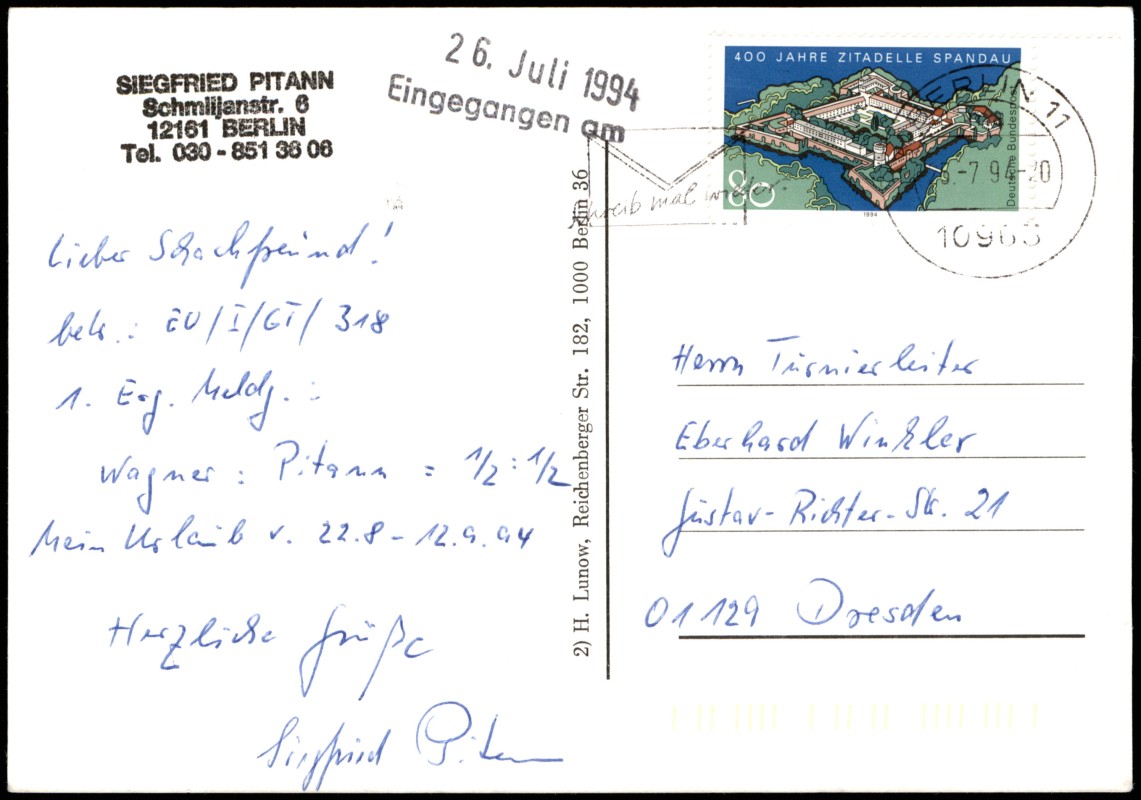 SIEGFRIED PITANN
Schmiljanstr. 6
12161 BERLIN
Tel. 030 - 851 36 06
26. Juli 1994
Eingegangen am
400 JAHRE ZITADELLE SPANDAU
Deutsche Bundespost
80
1994
BERLIN 11
-7 94-20
10963
Schreib mal wieder.
Lieber Schachfreund!
betr.: EU/I/GT/318
1. Erg. Meldg.:
Wagner : Pitann = 1/2 : 1/2
Mein Urlaub v. 22.8 - 12.9.94
Herzliche Grüße
Siegfried Pitann
2) H. Lunow, Reichenberger Str. 182, 1000 Berlin 36
Herrn Turnierleiter
Eberhard Winkler
Gustav-Richter-Str. 21
01129 Dresden